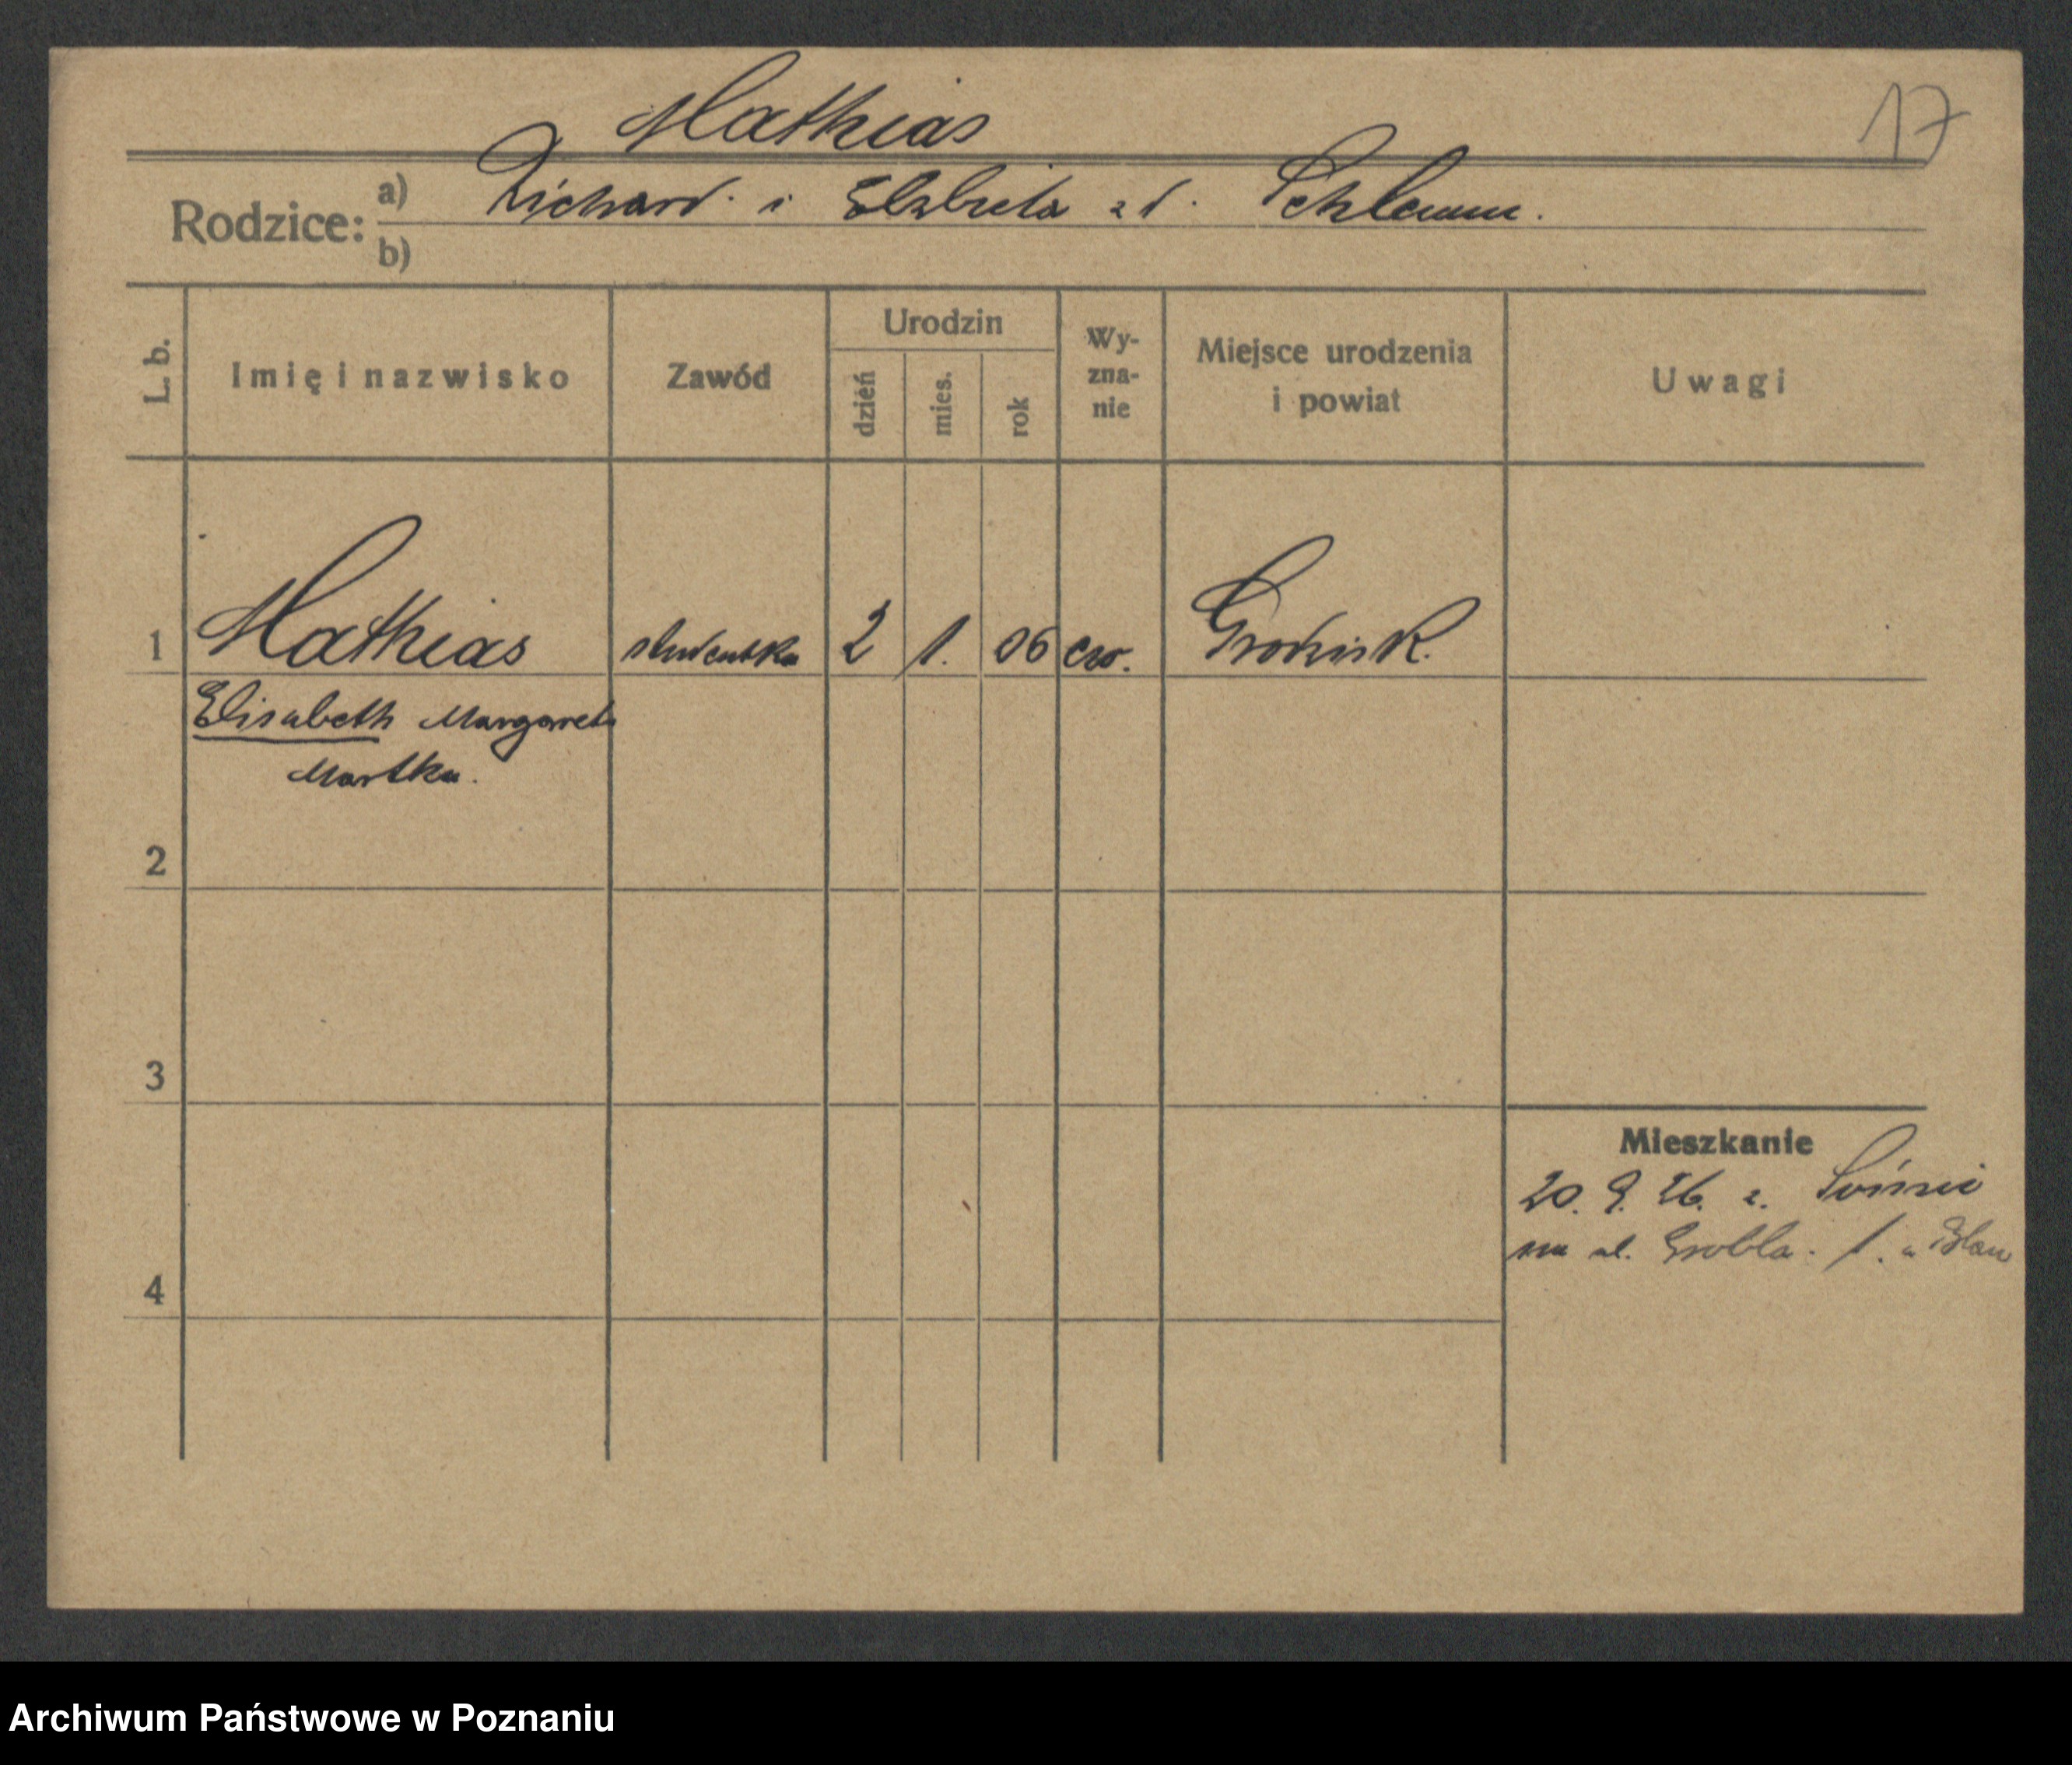 Mathias
17
Rodzice: a) Richard. i Elzbieta z d. Schlemm.
b)
L. b. Imię i nazwisko Zawód Urodzin dzień mies. rok Wy-zna-nie Miejsce urodzenia i powiat Uwagi
1 Mathias studentka 2 1. 06 ew. Grodzisk.
Elisabeth Margareta
Martha.
2
3
Mieszkanie
20. 9. 26. z.
na ul. Grobla. 1.
4
Archiwum Państwowe w Poznaniu